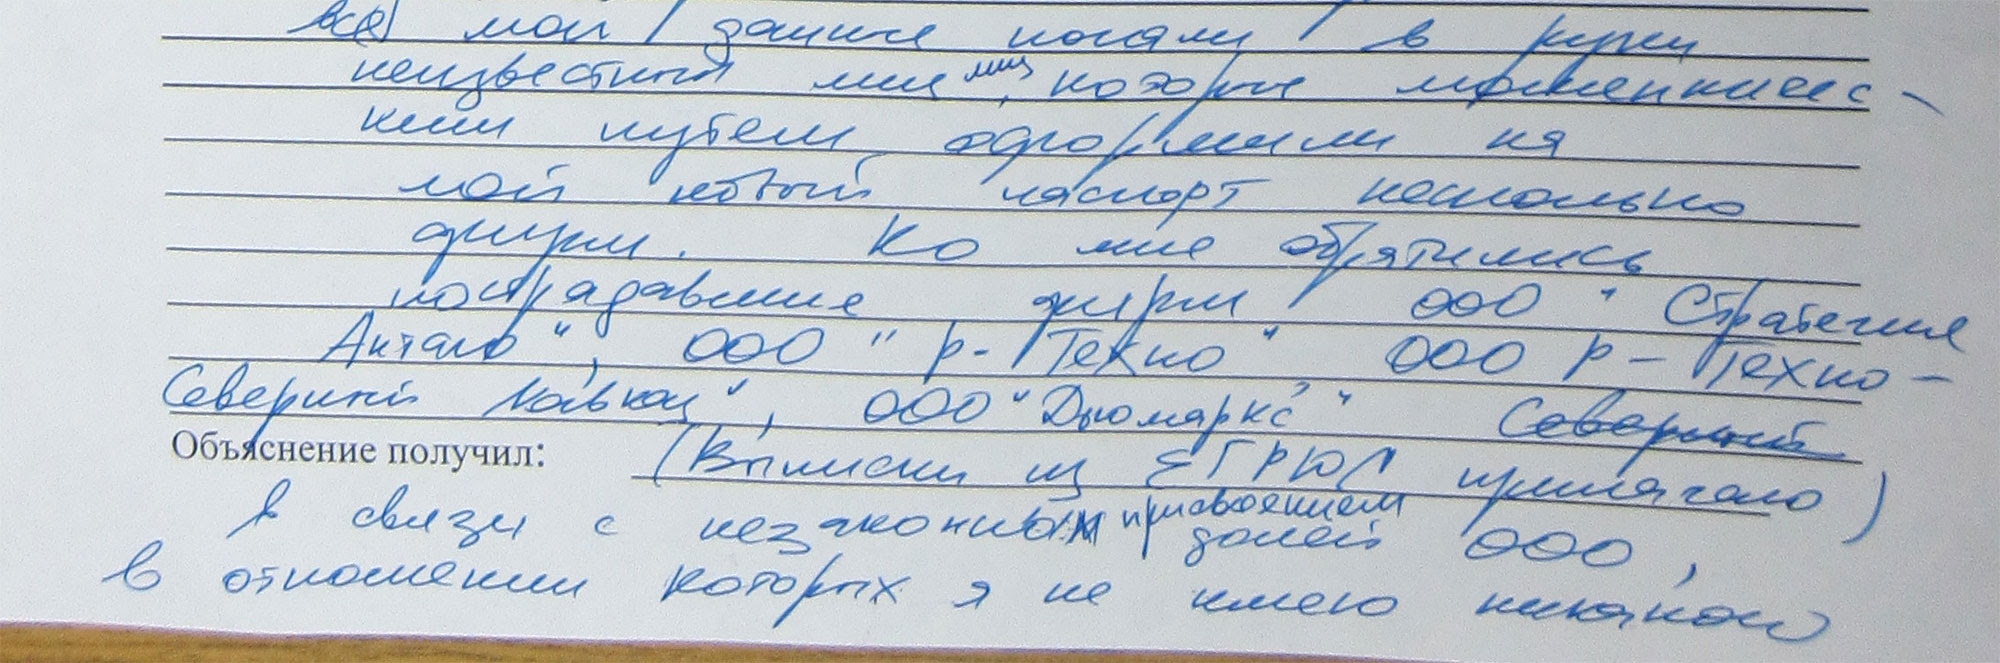 все мои данные попали в руки
неизвестных мне лиц, которые мошенничес-
ким путем оформили на
мой новый паспорт несколько
фирм. Ко мне обратились
пострадавшие фирмы ООО "Стратегия
Антало", ООО "Р-Техно" ООО Р-Техно-
Северный Кавказ", ООО "Дюмаркс" Северный
Объяснение получил: (Выписки из ЕГРЮЛ прилагаю)
В связи с незаконным присвоением долей ООО,
в отношении которых я не имею никакого